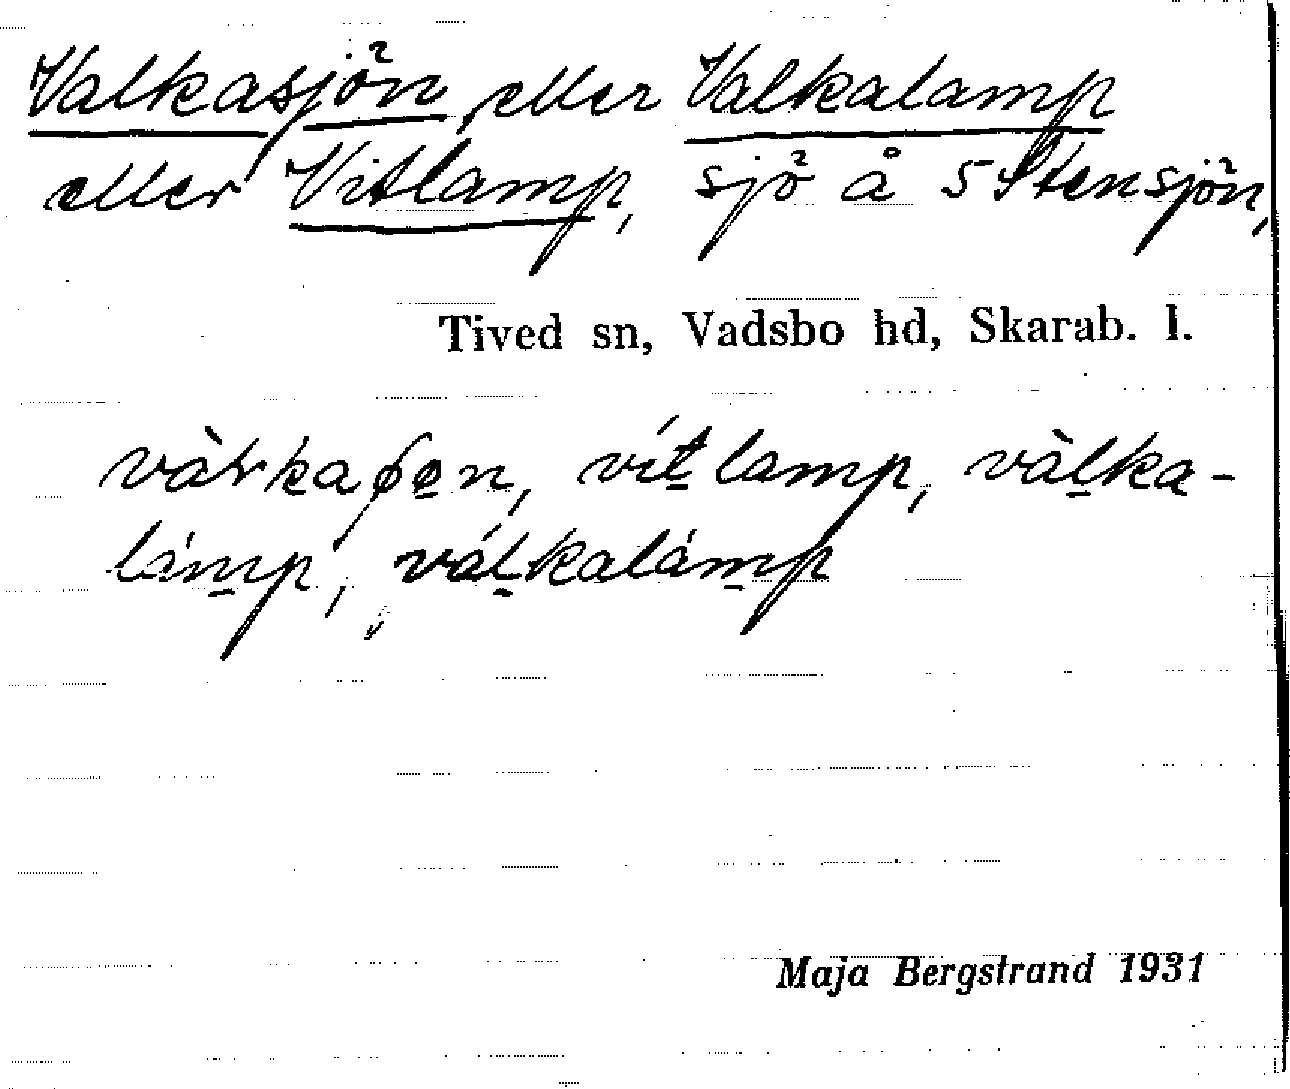 Valkasjön eller Valkalamp
eller Vitlamp, sjö å 5 Stensjön,
Tived sn, Vadsbo hd, Skarab. l.
vítlamp, vàlka-
lámp, válkalámp
Maja Bergstrand 1931